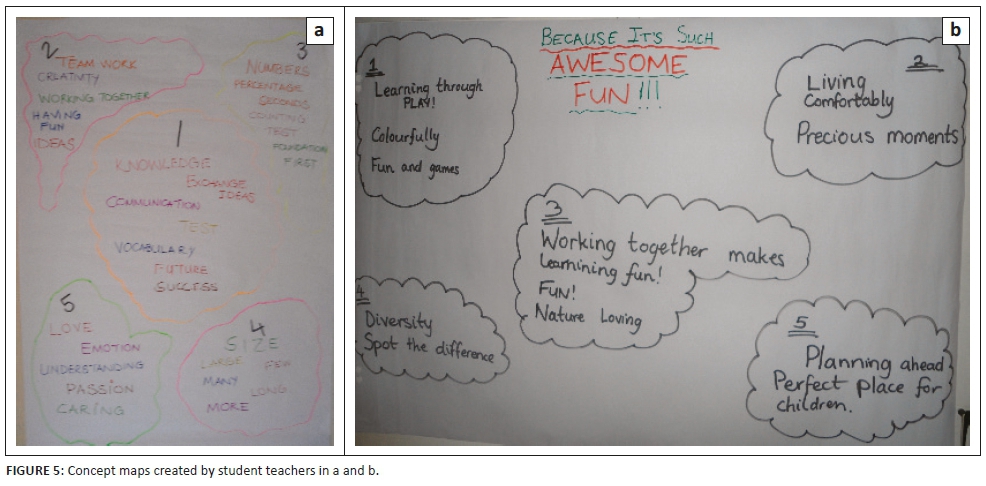 a
2
TEAM WORK
CREATIVITY
WORKING TOGETHER
HAVING
FUN
IDEAS
3
NUMBERS
PERCENTAGE
SECONDS
COUNTING
TEST
FOUNDATION
FIRST
1
KNOWLEDGE
EXCHANGE
IDEAS
COMMUNICATION
TEST
VOCABULARY
FUTURE
SUCCESS
5
LOVE
EMOTION
UNDERSTANDING
PASSION
CARING
4
SIZE
LARGE FEW
MANY LONG
MORE
b
BECAUSE IT'S SUCH
AWESOME
FUN!!!
1
Learning through
PLAY!
Colourfully
Fun and games
2
Living
Comfortably
Precious moments
3
Working together makes
Learnining fun!
FUN!
Nature Loving
4
Diversity
Spot the difference
5
Planning ahead
Perfect place for
children.
FIGURE 5: Concept maps created by student teachers in a and b.